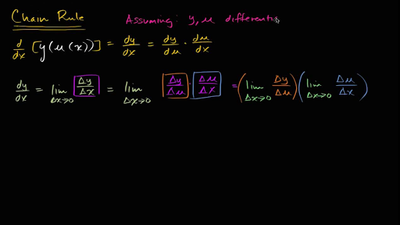 Chain Rule
Assuming: y, u differenti
d/dx [y(u(x))] = dy/dx = dy/du · du/dx
dy/dx = lim Δx→0 Δy/Δx = lim Δx→0 Δy/Δu · Δu/Δx = (lim Δx→0 Δy/Δu)(lim Δx→0 Δu/Δx)